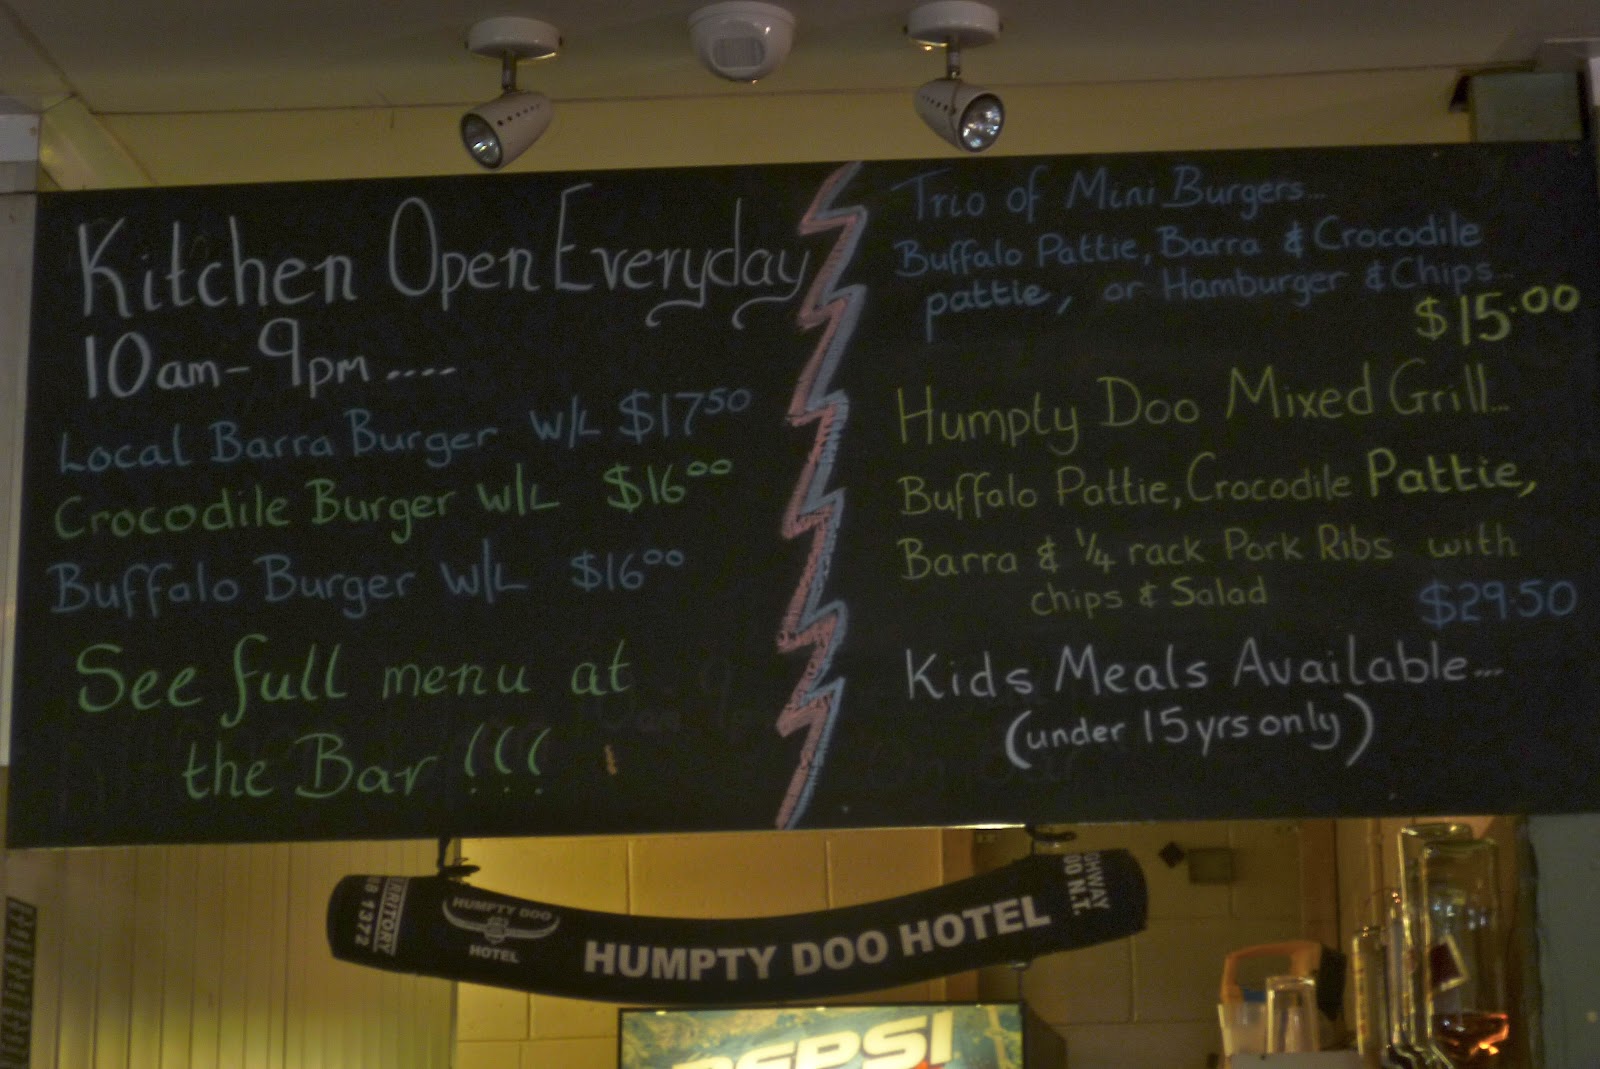 Kitchen Open Everyday
10am - 9pm ....
Local Barra Burger W/L $17.50
Crocodile Burger W/L $16.00
Buffalo Burger W/L $16.00
See full menu at
the Bar !!!
Trio of Mini Burgers...
Buffalo Pattie, Barra & Crocodile
pattie, or Hamburger & Chips...
$15.00
Humpty Doo Mixed Grill...
Buffalo Pattie, Crocodile Pattie,
Barra & 1/4 rack Pork Ribs with
chips & Salad $29.50
Kids Meals Available...
(under 15yrs only)
HUMPTY DOO
HOTEL
HUMPTY DOO HOTEL
PEPSI